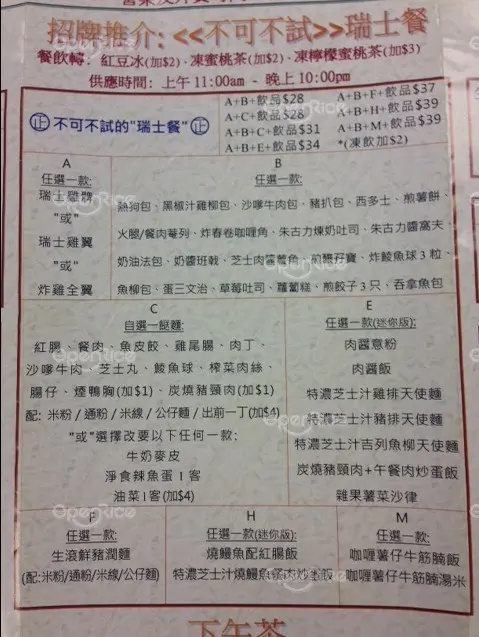 招牌推介: <<不可不試>>瑞士餐
餐飲轉: 紅豆冰(加$2)、凍蜜桃茶(加$2)、凍檸檬蜜桃茶(加$3)
供應時間: 上午 11:00am - 晚上 10:00pm
正 不可不試的"瑞士餐" 正
A+B+飲品$28
A+C+飲品$28
A+B+C+飲品$31
A+B+E+飲品$34
A+B+F+飲品$37
A+B+H+飲品$39
A+B+M+飲品$39
*(凍飲加$2)
A
任選一款:
瑞士雞髀
"或"
瑞士雞翼
"或"
炸雞全翼
B
任選一款:
熱狗包、黑椒汁雞柳包、沙嗲牛肉包、豬扒包、西多士、煎薯餅、
火腿/餐肉菴列、炸春卷咖喱角、朱古力煉奶吐司、朱古力醬窩夫
奶油法包、奶醬班戟、芝士肉醬薯角、煎釀孖寶、炸鯪魚球 3 粒、
魚柳包、蛋三文治、草莓吐司、蘿蔔糕、煎餃子 3 只、吞拿魚包
C
自選一餸麵:
紅腸、餐肉、魚皮餃、雞尾腸、肉丁、
沙嗲牛肉、芝士丸、鯪魚球、榨菜肉絲、
腸仔、煙鴨胸(加$1)、炭燒豬頸肉(加$1)
配: 米粉 / 通粉 / 米線 / 公仔麵 / 出前一丁(加$4)
"或"選擇改要以下任何一款:
牛奶麥皮
淨食辣魚蛋 1 客
油菜 1 客(加$4)
E
任選一款(迷你版):
肉醬意粉
肉醬飯
特濃芝士汁雞排天使麵
特濃芝士汁豬排天使麵
特濃芝士汁吉列魚柳天使麵
炭燒豬頸肉+午餐肉炒蛋飯
雜果薯菜沙律
F
任選一款:
生滾鮮豬潤麵
(配:米粉/通粉/米線/公仔麵)
H
任選一款(迷你版):
燒鰻魚配紅腸飯
特濃芝士汁燒鰻魚餐肉炒蛋飯
M
任選一款:
咖喱薯仔牛筋腩飯
咖喱薯仔牛筋腩湯米
下午茶
OpenRice